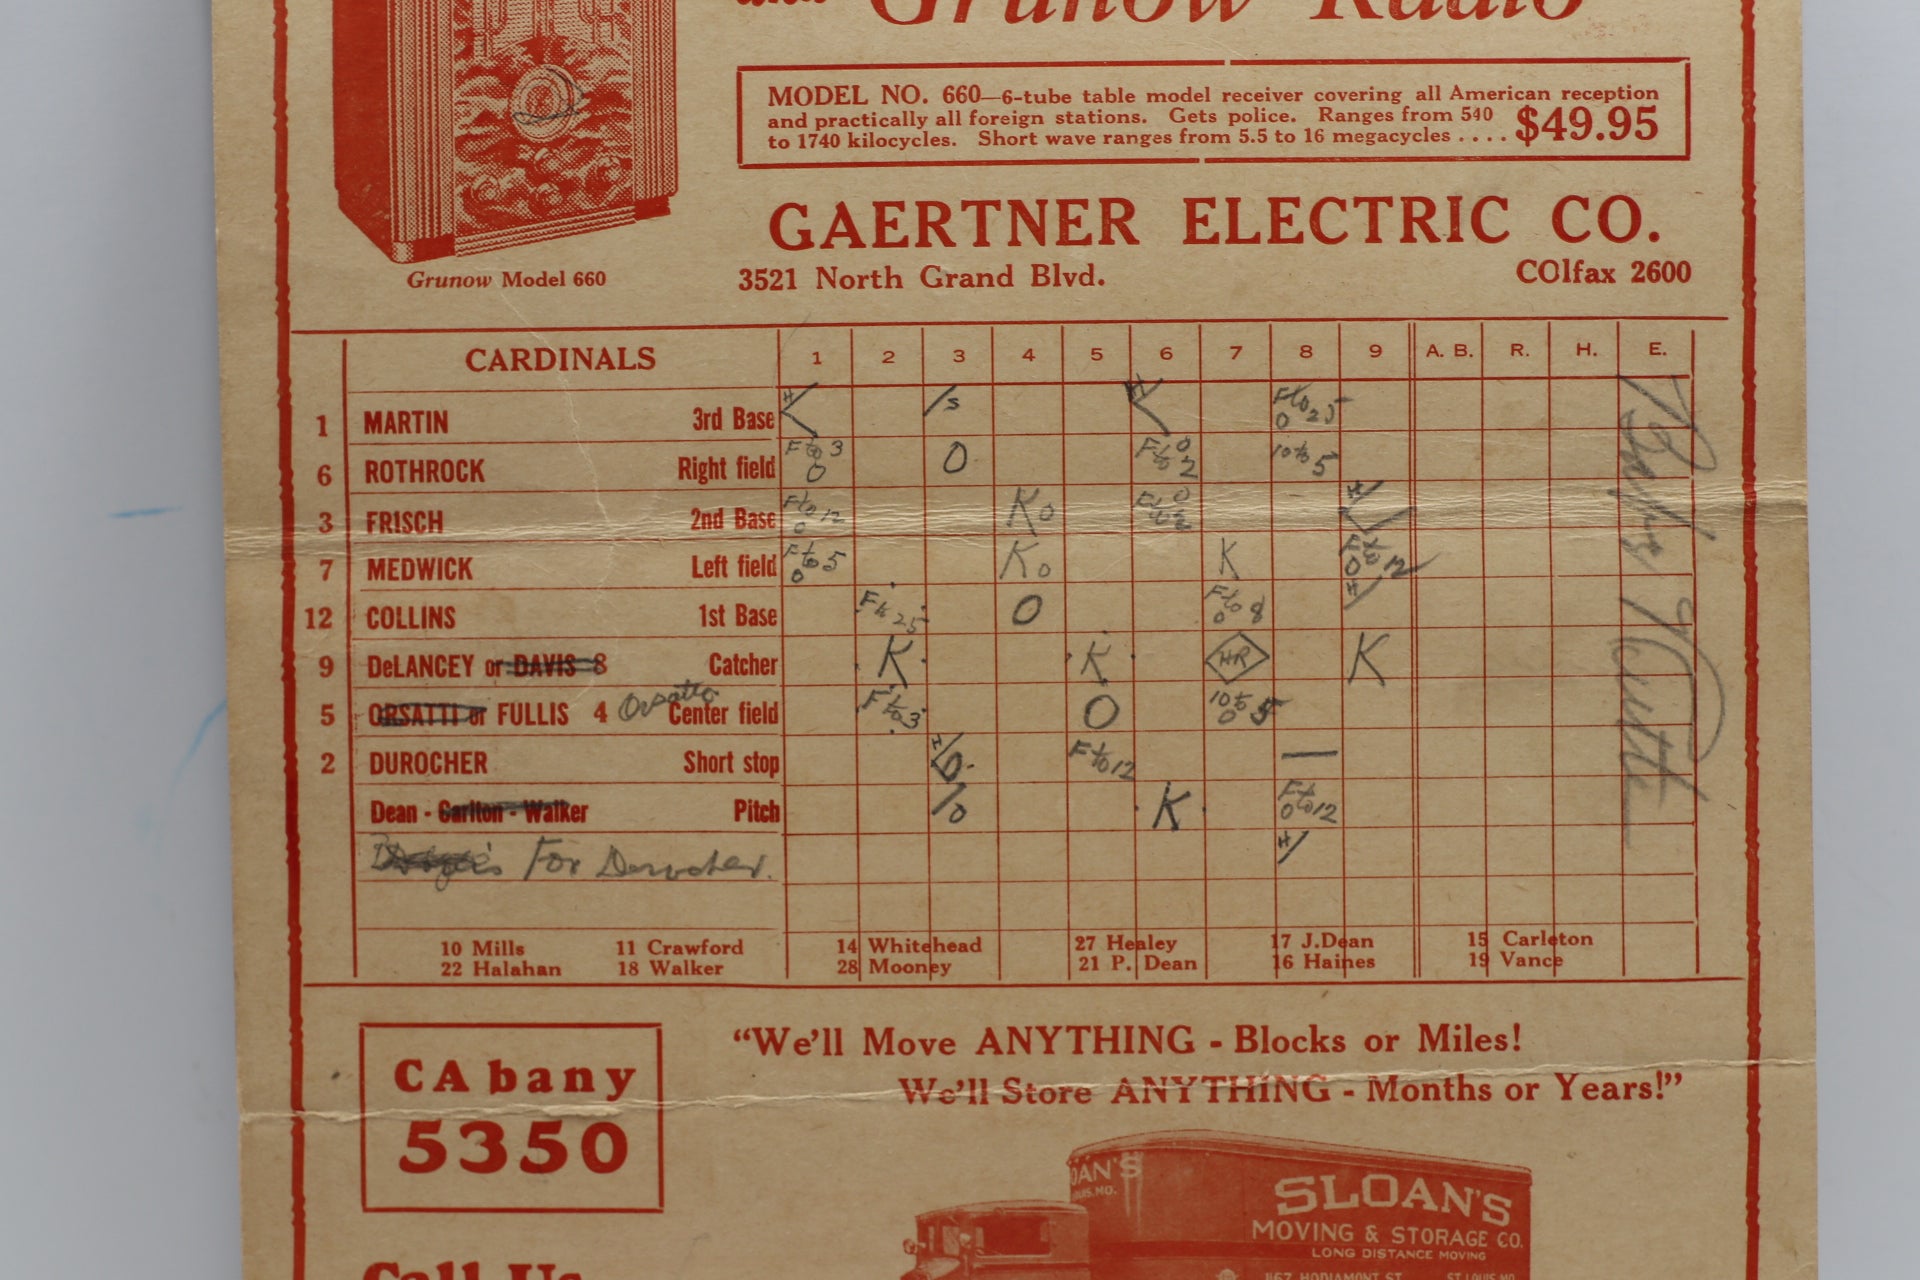 and Grunow Radio
MODEL NO. 660—6-tube table model receiver covering all American reception
and practically all foreign stations. Gets police. Ranges from 540
to 1740 kilocycles. Short wave ranges from 5.5 to 16 megacycles . . . . $49.95
GAERTNER ELECTRIC CO.
Grunow Model 660
3521 North Grand Blvd. COlfax 2600
CARDINALS 1 2 3 4 5 6 7 8 9 A. B. R. H. E.
1 MARTIN 3rd Base H S H F to 25 0
6 ROTHROCK Right field F to 3 0 0 F to 2 0 10 to 5
3 FRISCH 2nd Base F to 12 0 K0 F to 2 0 H
7 MEDWICK Left field F to 5 0 K0 K F to 12 0
12 COLLINS 1st Base F to 25 0 F to 8 0 H
9 DeLANCEY or DAVIS 8 Catcher K K HR K
5 ORSATTI or FULLIS 4 Orsatto Center field F to 3 0 10 to 5 0
2 DUROCHER Short stop H 0 F to 12 —
Dean - Carlton - Walker Pitch 0 K F to 12 0
For Durocher. H
10 Mills 11 Crawford 14 Whitehead 27 Healey 17 J.Dean 15 Carleton
22 Halahan 18 Walker 28 Mooney 21 P. Dean 16 Haines 19 Vance
CAbany
5350
"We'll Move ANYTHING - Blocks or Miles!
We'll Store ANYTHING - Months or Years!"
SLOAN'S
MOVING & STORAGE CO.
LONG DISTANCE MOVING
1167 HODIAMONT ST. ST. LOUIS MO.
Call Us